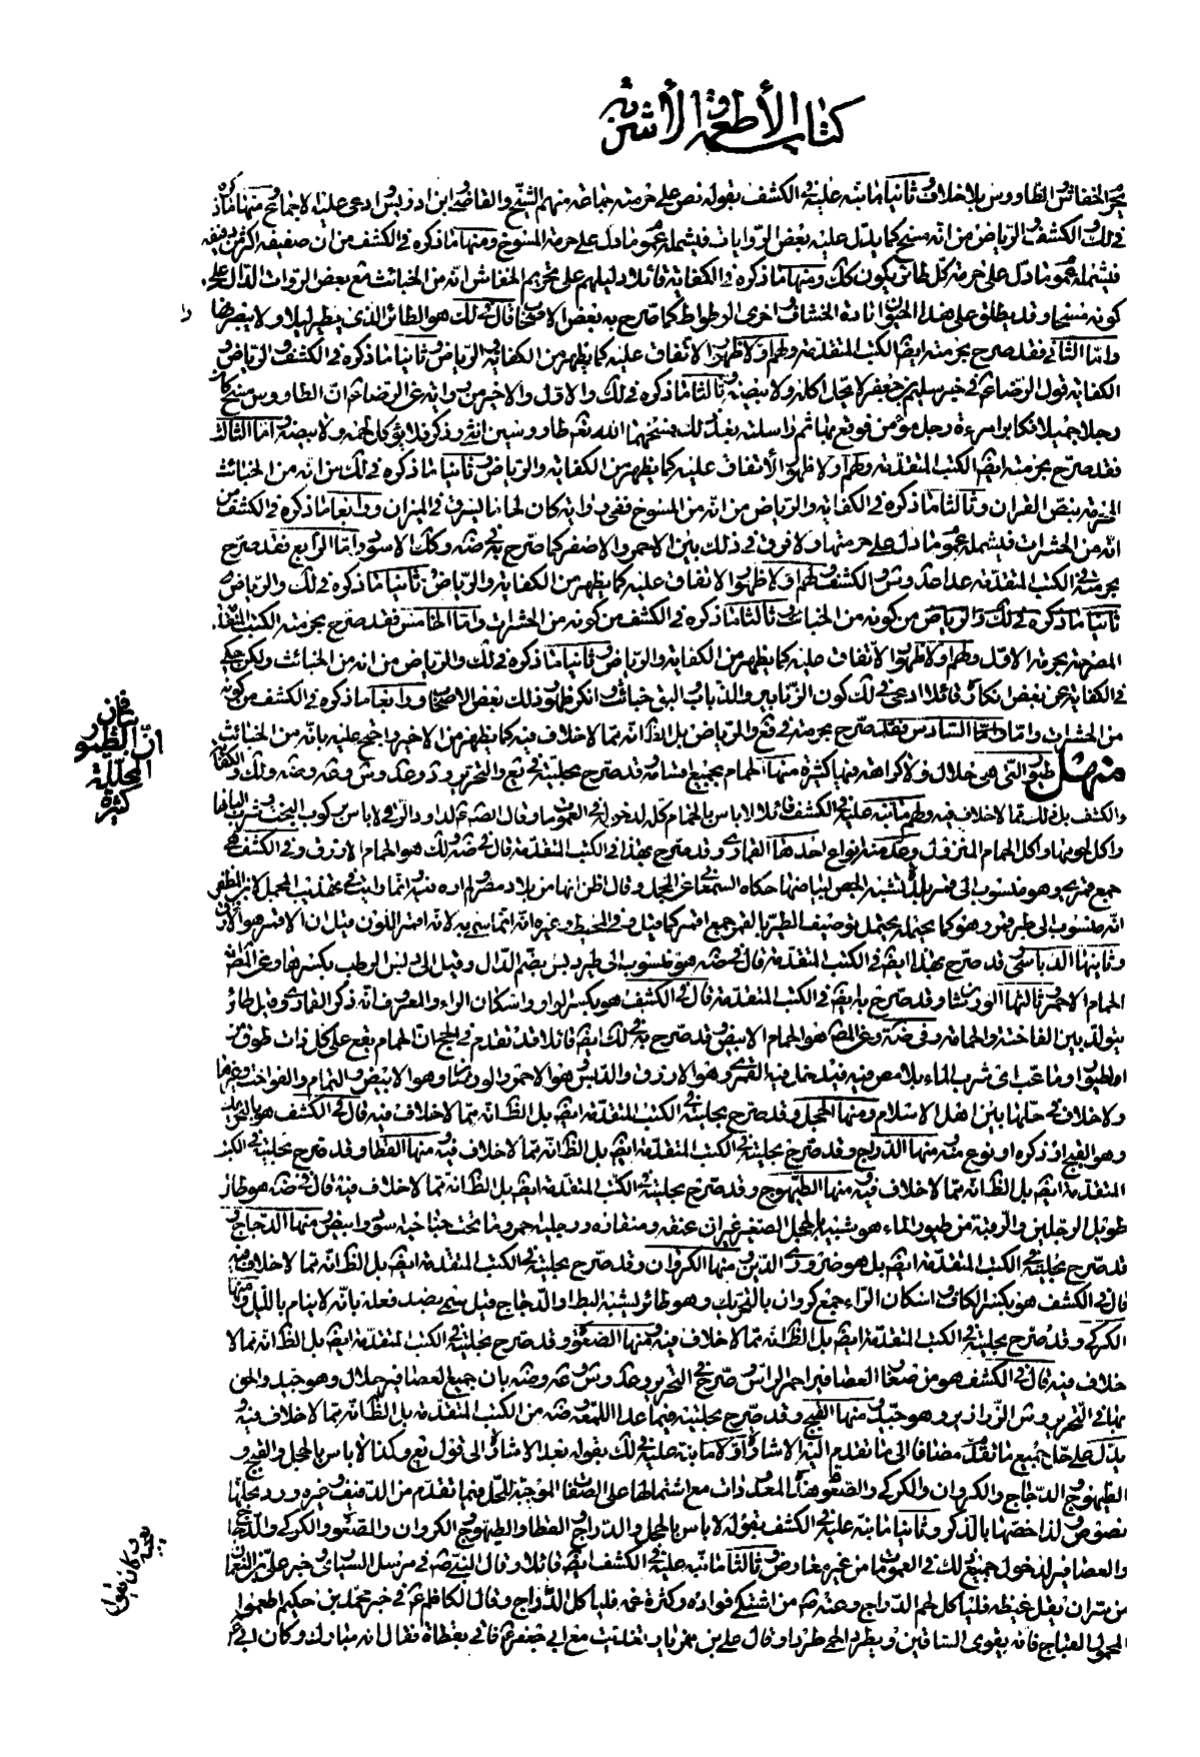 كتاب الأطعمة والأشربة
الخفاش والطاوس بلا خلاف وثانيا ما نبه عليه في الكشف بقوله نص على حرمته جماعة منهم الشيخ والقاضي وابن ادريس وادعى عليه الاجماع ومنها ما ذكره
في لك والكشف والرياض من انه مسخ كما يدل عليه بعض الروايات فيشمله عموم ما دل على حرمة المسوخ ومنها ما ذكره في الكشف من ان صفيفه اكثر من دفيفه
فيشمله عموم ما دل على حرمة كل طائر يكون كك ومنها ما ذكره في الكفاية قائلا دليلهم على تحريم الخفاش انه من الخبائث مع بعض الروايات الدال على
كونه مسخا وقد يطلق على هذا الحيوان تارة الخشاف واخرى الوطواط كما صرح به بعض الاصحاب قال في لك هو الطائر الذي يطير ليلا ولا يبصر نهارا
واما الثاني فقد صرح بحرمته ايضا الكتب المتقدمة ولهم اولا ظهور الاتفاق عليه كما يظهر من الكفاية والرياض وثانيا ما ذكره في الكشف والرياض و
الكفاية قول الرضا ع في خبر سليمان جعفر لا يحل اكله ولا بيضه وثالثا ما ذكره في لك والاول والاخير من رواية عن الرضا ع ان الطاووس مسخ كان
رجلا جميلا فكابر امرءة رجل مؤمن فوقع بها ثم راسلته بعد ذلك فمسخهما الله تعالى طاووسين انثى وذكر فلا يؤكل لحمه ولا بيضه واما الثالث
فقد صرح بحرمته ايضا الكتب المتقدمة ولهم اولا ظهور الاتفاق عليه كما يظهر من الكفاية والرياض وثانيا ما ذكره في لك من انه من الخبائث
المحرمة بنص القران وثالثا ما ذكره في الكفاية والرياض من انه من المسوخ ففي رواية كان لحاما يسرق في الميزان ورابعا ما ذكره في الكشف من
انه من الحشرات فيشمله عموم ما دل على حرمتها ولا فرق في ذلك بين الاحمر والاصفر كما صرح به في ضه وكك الاسود واما الرابع فقد صرح
بحرمته في الكتب المتقدمة عدا عد وش والكشف ولهم اولا ظهور الاتفاق عليه كما يظهر من الكفاية والرياض وثانيا ما ذكره في لك والرياض
ثانيا ما ذكره في لك والرياض من كونه من الخبائث وثالثا ما ذكره في الكشف من كونه من الحشرات واما الخامس فقد صرح بحرمته الكتب المتقدمة
المصرحة بحرمة الاول ولهم اولا ظهور الاتفاق عليه كما يظهر من الكفاية والرياض وثانيا ما ذكره في لك والرياض من انه من الخبائث ولكن حكى
في الكفاية عن بعض انكاره قائلا ادعى في لك كون الزنابير والذباب والبق خبائث وانكر ظهور ذلك بعض الاصحاب ورابعا ما ذكره في الكشف من كونه
من الحشرات واما السادس فقد صرح بحرمته في يع والرياض بل الظ انه مما لا خلاف فيه كما يظهر من الاخير واحتج عليه بانه من الخبائث
منهل الطيور التي هي حلال ولا كراهة فيها كثيرة منها الحمام بجميع اقسامه وقد صرح بحليته في يع والتحرير ود وعد وش وضه ولك والكفاية
والكشف بل في لك مما لا خلاف فيه ولهم ما نبه عليه في الكشف قائلا لا باس بالحمام كله لدخوله في العمومات وقال الص ع لداود الرقي لا باس بركوب البخت وشرب البانها
واكل لحومها واكل الحمام المسرول وعد منه انواع احدها القماري وقد صرح بهذا في الكتب المتقدمة قال في ضه ولك هو الحمام الازرق وفي الكشف هي
جمع قمري وهو منسوب الى قمر بلد يشبه الجص لبياضها حكاه السمعاني عن المجمل وقال اظن انها من بلاد مصر
انه منسوب الى طير قمر وهو كما يحتمله يحتمل توصيف الطير بالقمر جمع اقمر كما قيل وفي المحيط وغيره انه انما سمي به لانه اقمر اللون قيل ان الاقمر هو الازرق
وثانيها الدباسي قد صرح بهذا ايضا في الكتب المتقدمة قال في ضه هو منسوب الى طير دبس بضم الدال وقيل الى دبس الرطب بكسرها وعن المص انه
الحمام الاحمر وثالثها الورشان وقد صرح به ايضا في الكتب المتقدمة قال في الكشف هو بكسر الواو واسكان الراء والمعروف انه ذكر القماري وقيل طائر
يتولد بين الفاختة والحمامة وفي ضه وعن المص هو الحمام الابيض وقد صرح به في لك ايضا قائلا قد تقدم في الحج ان الحمام يقع على كل ذات طوق من
الطيور او ما عب اي شرب الماء بلا مص فيه فيدخل فيه القمري وهو الازرق والدبسي هو الاحمر والورشان وهو الابيض واليمام والفواخت وغيرها
ولا خلاف في حلها بين اهل الاسلام ومنها الحجل وقد صرح بحليته في الكتب المتقدمة ايضا بل الظ انه مما لا خلاف فيه قال في الكشف هو بالتحريك
وهو القبج او ذكره او نوع منه ومنها الدراج وقد صرح بحليته في الكتب المتقدمة ايضا بل الظ انه مما لا خلاف فيه ومنها القطا وقد صرح بحليته في الكتب
المتقدمة ايضا بل الظ انه مما لا خلاف فيه ومنها الطيهوج وقد صرح بحليته في الكتب المتقدمة ايضا بل الظ انه مما لا خلاف فيه قال في ضه هو طائر
طويل الرجلين والرقبة من طيور الماء هو شبيه بالحجل الصغير غير ان عنقه ومنقاره ورجليه حمر وما تحت جناحيه سود وابيض ومنها الدجاج و
قد صرح بحليته في الكتب المتقدمة ايضا بل هو ضروري الدين ومنها الكروان وقد صرح بحليته في الكتب المتقدمة ايضا بل الظ انه مما لا خلاف فيه
قال في الكشف هو بكسر الكاف واسكان الراء جمع كروان بالتحريك وهو طائر يشبه البط والدجاج قيل سمي بضد فعله بانه لا ينام بالليل ومنها
الكركي وقد صرح بحليته في الكتب المتقدمة ايضا بل الظ انه مما لا خلاف فيه ومنها الصعو وقد صرح بحليته في الكتب المتقدمة ايضا بل الظ انه مما لا
خلاف فيه قال في الكشف هو من صغار العصافير احمر الراس صرح في التحرير وعد وش وضه بان جميع العصافير حلال وهو جيد والحق
بها في التحرير وش الزرازير وهو جيد ومنها القبج وقد صرح بحليته فيما عدا اللمعة وضه من الكتب المتقدمة بل الظ انه مما لا خلاف فيه و
يدل على حل جميع ما تقدم مضافا الى ما تقدم اليه الاشارة اولا ما نبه عليه في لك بقوله بعد الاشارة الى قول يع وكذا لا باس بالحجل والقبج و
الطيهوج والدجاج والكروان والكركي والصعو هذه المعدودات مع اشتمالها على الصفات الموجبة للحل فيما تقدم من الدفيف وغيره ورد بحلها
نصوص لذا خصها بالذكر وثانيا ما نبه عليه في الكشف بقوله لا باس بالحجل والدراج والقطا والطيهوج والكروان والصعو والكركي والدجاج
والعصافير لدخول جميع ذلك في العمومات من غير معارض وثالثا ما نبه عليه في الكشف ايضا قائلا وقال النبي ص في مرسل السياري خبر علي بن النعمان
من سره ان يقل غيظه فلياكل لحم الدراج وعنه ص من اشتكى فواده وكثرة غمه فلياكل الدراج وقال الكاظم ع في خبر محمد بن حكيم اطعموا
المحموم لحم القباج فانه يقوي الساقين ويطرد الحمى طردا وقال علي بن مهزيار تغديت مع ابي جعفر ع فاتى بقطاة فقال انه مبارك وكان ابي ع
في بيان
ان الطيور
المحللة
كثيرة
يعجبه
وكان يقول